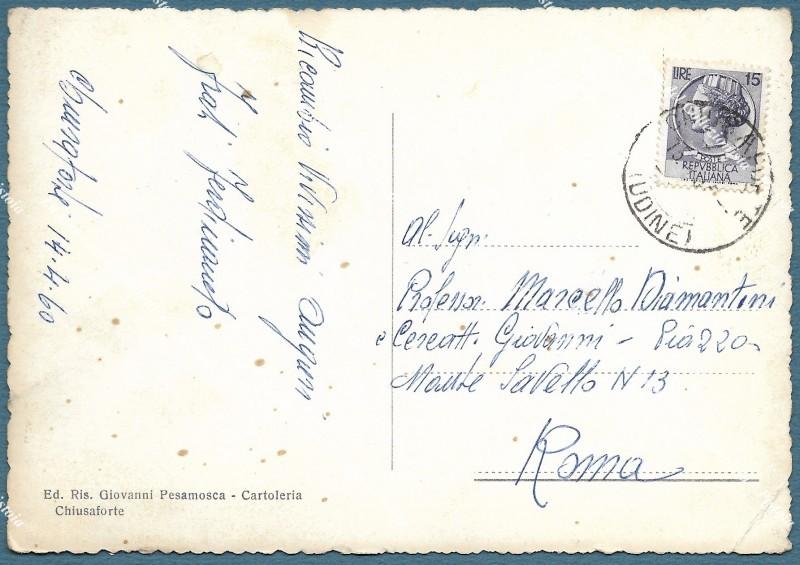 Ricambio Vivissimi Auguri
Ferdinando
14.4.60
Ed. Ris. Giovanni Pesamosca - Cartoleria
Chiusaforte
LIRE 15
POSTE
REPVBBLICA
ITALIANA
(UDINE)
Al. Sign.
Professor. Marcello Diamantini
e Cercatt. Giovanni - Piazza
Monte Savello N 13
Roma